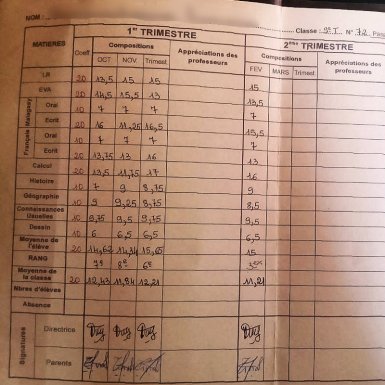 NOM :
Classe : 9e I N° 72
1er TRIMESTRE 2ème TRIMESTRE
MATIERES Coeff Compositions Appréciations des professeurs Compositions Appréciations des professeurs
OCT NOV. Trimest FEV MARS Trimest
LR 20 13,5 15 15 15
EVA 20 14,5 15,5 13 13,5
Malagasy Oral 10 7 7 7 7
Ecrit 20 16 11,25 16,5 15,5
Français Oral 10 7 7 7 7
Ecrit 20 13,75 13 16 13
Calcul 20 13,5 11,75 17 16
Histoire 10 7 9 8,75 9
Géographie 10 9 9,25 8,75 8,5
Connaissances Usuelles 10 9,75 9,5 9,75 9,5
Dessin 10 6 6,5 6,5 6,5
Moyenne de l'élève 20 14,62 14,34 15,65 15
RANG 7e 8e 6e
Moyenne de la classe 20 12,43 11,84 12,21 11,21
Nbres d'élèves
Absence
Signatures
Directrice
Parents